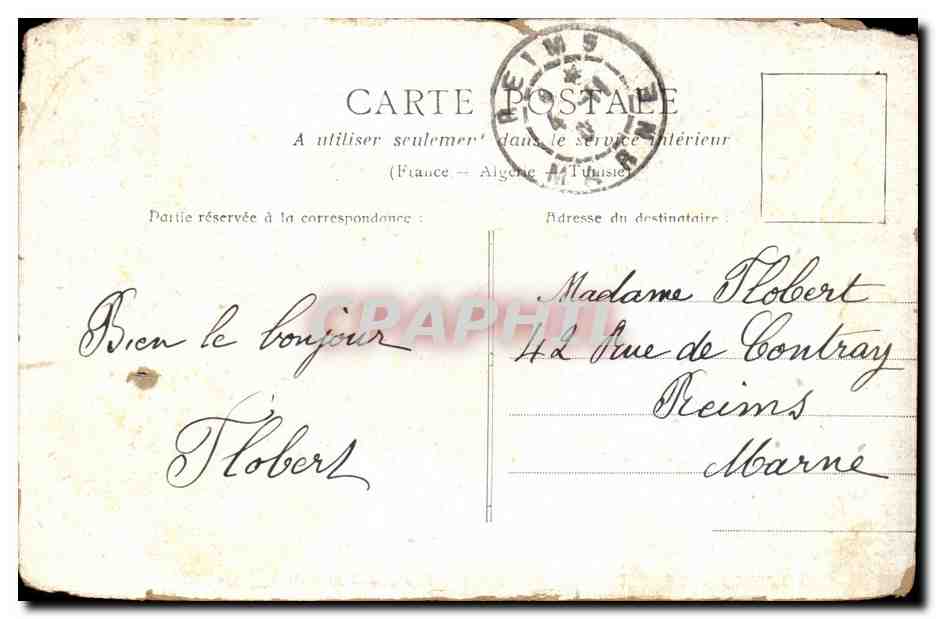 CARTE POSTALE
A utiliser seulement dans le service intérieur
(France - Algérie - Tunisie)
REIMS
MARNE
Partie réservée à la correspondance :
Adresse du destinataire :
Bien le bonjour
Flobert
Madame Flobert
42 Rue de Contray
Reims
Marne
CPAPHIL